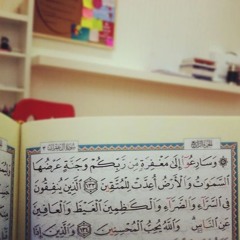 سورة آل عمران ٣
وَسَارِعُوٓا۟ إِلَىٰ مَغْفِرَةٍ مِّن رَّبِّكُمْ وَجَنَّةٍ عَرْضُهَا
ٱلسَّمَٰوَٰتُ وَٱلْأَرْضُ أُعِدَّتْ لِلْمُتَّقِينَ ١٣٣ ٱلَّذِينَ يُنفِقُونَ
فِى ٱلسَّرَّآءِ وَٱلضَّرَّآءِ وَٱلْكَٰظِمِينَ ٱلْغَيْظَ وَٱلْعَافِينَ
عَنِ ٱلنَّاسِ وَٱللَّهُ يُحِبُّ ٱلْمُحْسِنِينَ ١٣٤ وَٱلَّذِينَ إِذَا